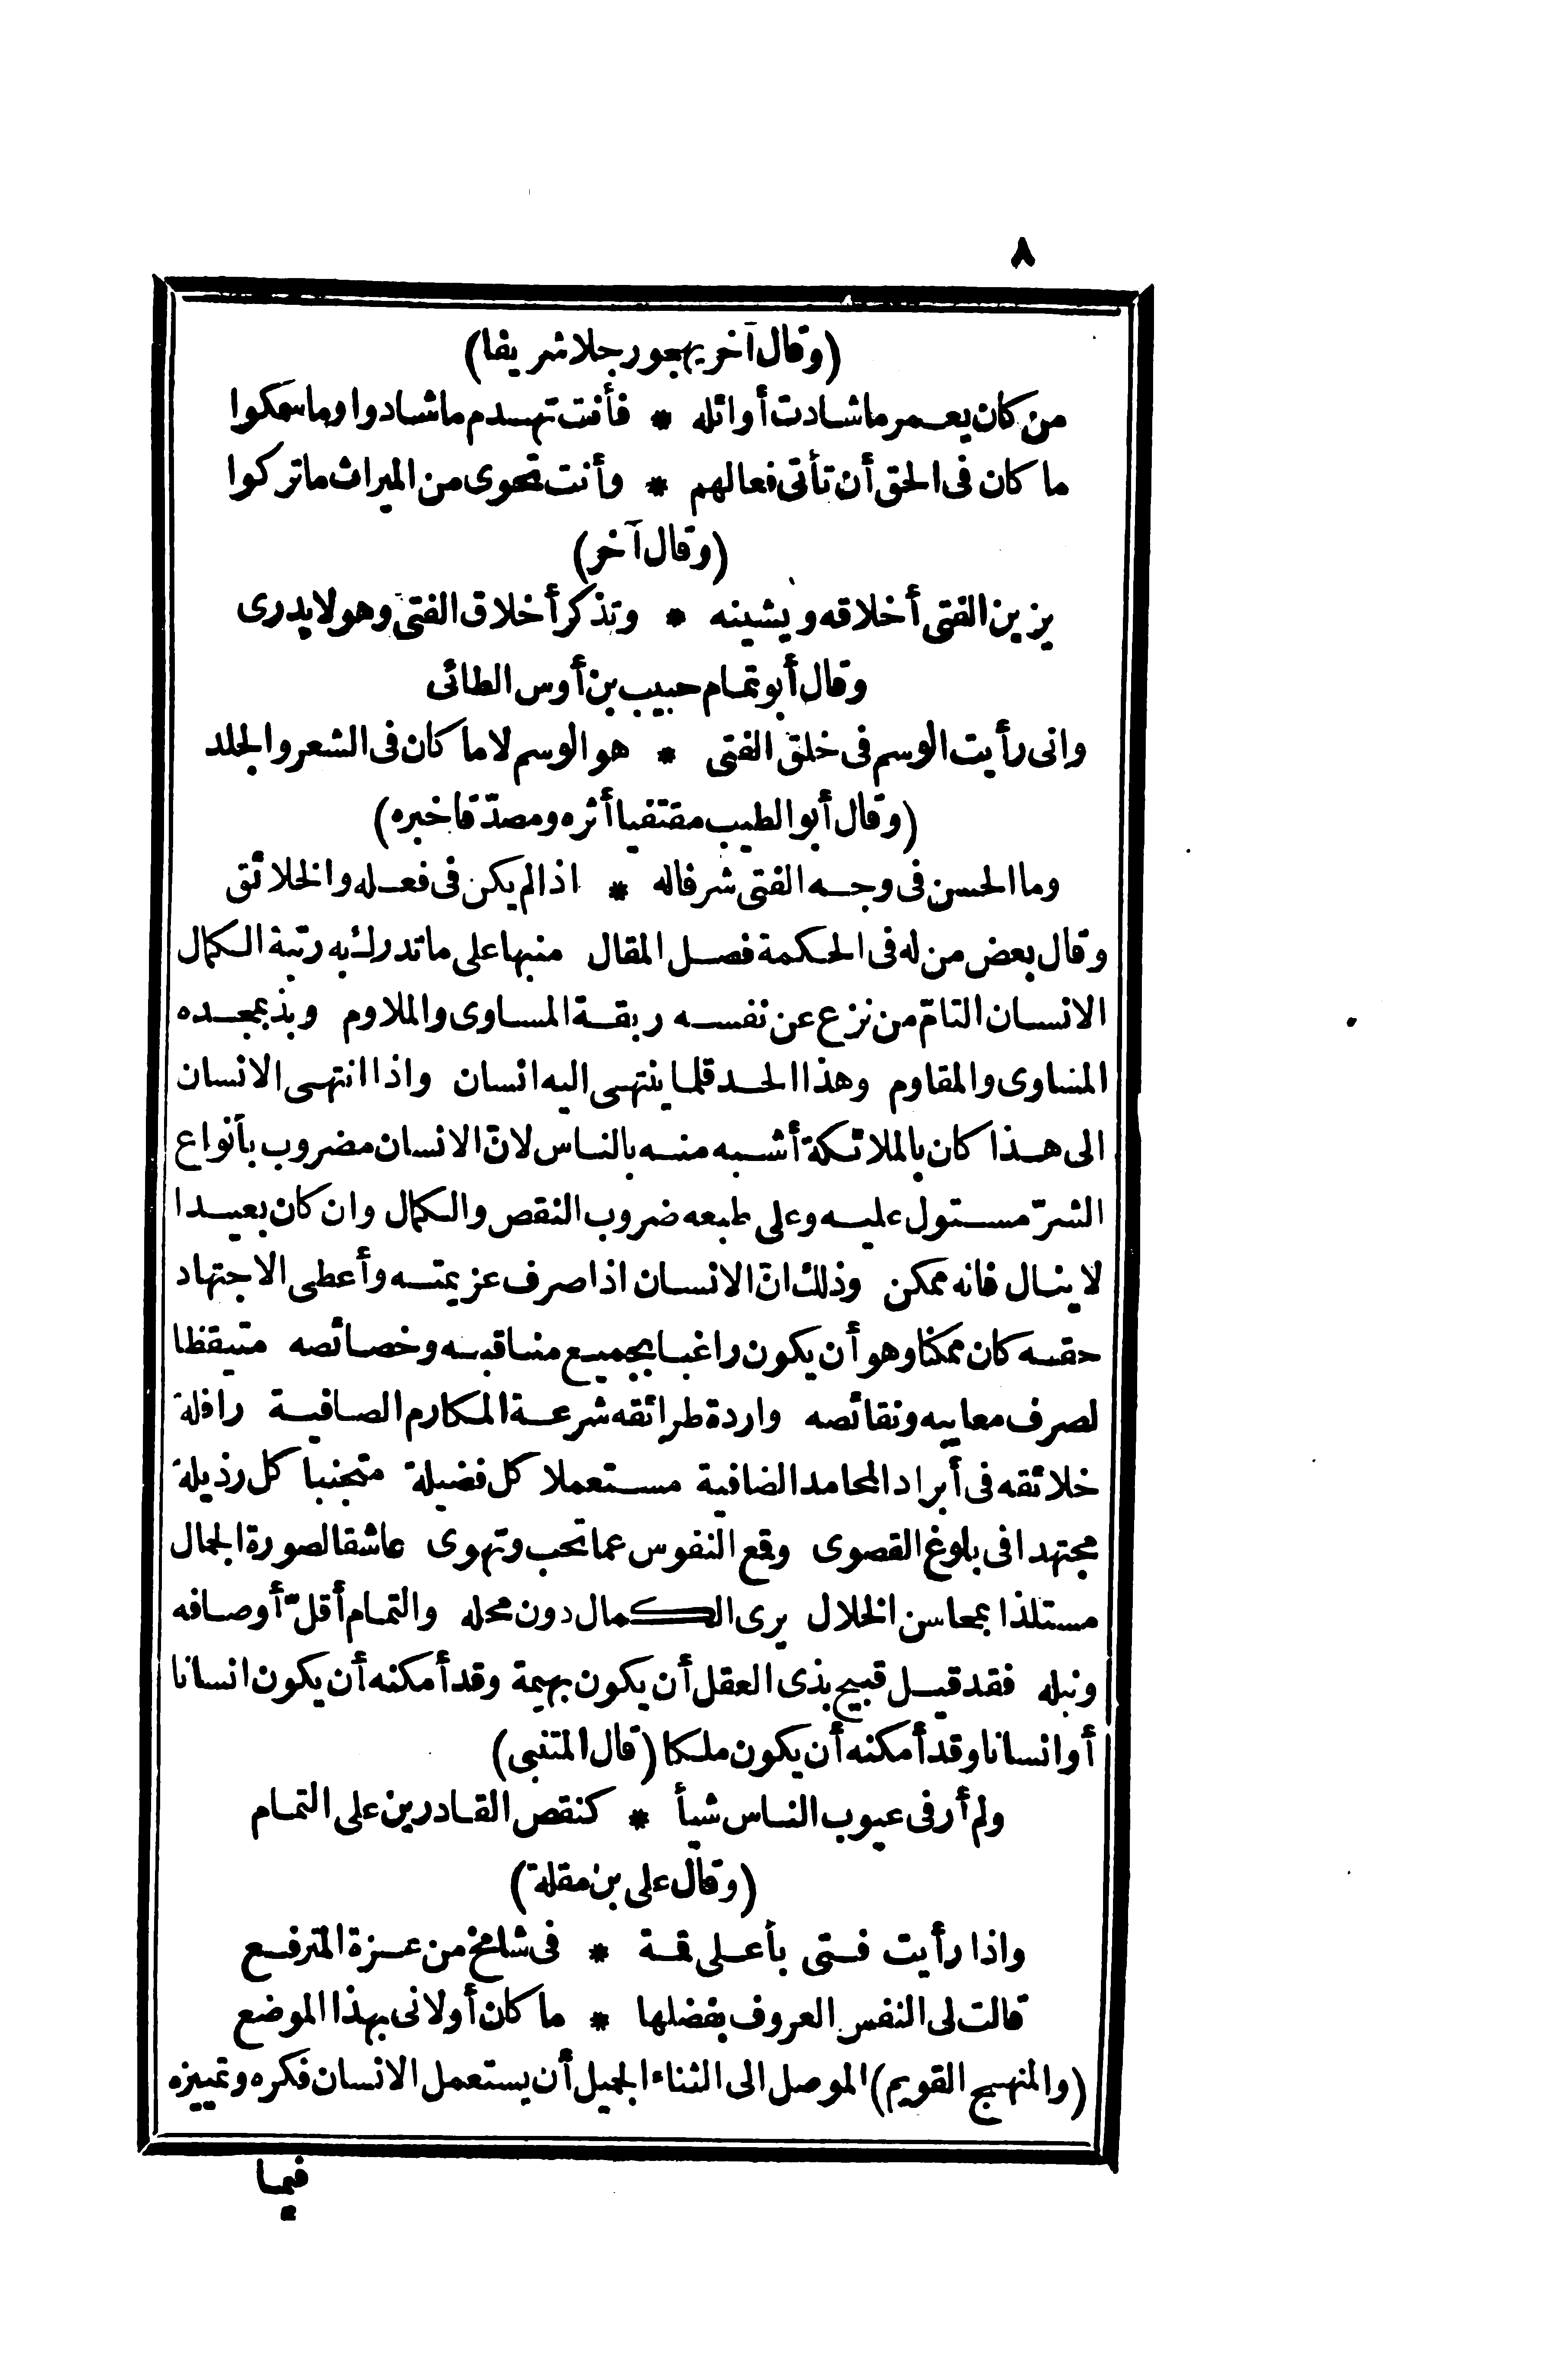 ٨
(وقال آخر يهجو رجلا شريفا)
من كان يعمر ماشادت أوائله * فأنت تهدم ماشادوا وماسمكوا
ما كان فى الحق أن تأتى فعالهم * وأنت تحوى من الميراث ماتركوا
(وقال آخر)
يزين الفتى أخلاقه ويشينه * وتذكر أخلاق الفتى وهو لا يدرى
وقال أبو تمام حبيب بن أوس الطائى
وانى رأيت الوسم فى خلق الفتى * هو الوسم لا ما كان فى الشعر والجلد
(وقال أبو الطيب مقتفيا أثره ومصدّقا خبره)
وما الحسن فى وجه الفتى شرفا له * اذا لم يكن فى فعله والخلائق
وقال بعض من له فى الحكمة فصل المقال منبها على ما تدرك به رتبة الكمال
الانسان التامّ من نزع عن نفسه ربقة المساوى والملاوم وبذ بمجده
المناوى والمقاوم وهذا الحد قلما ينتهى اليه انسان واذا انتهى الانسان
الى هذا كان بالملائكة أشبه منه بالناس لانّ الانسان مضروب بأنواع
الشرّ مستول عليه وعلى طبعه ضروب النقص والكمال وان كان بعيدا
لا ينال فانه ممكن وذلك انّ الانسان اذا صرف عزيمته وأعطى الاجتهاد
حقه كان ممكنا وهو أن يكون راغبا بجميع مناقبه وخصائصه متيقظا
لصرف معايبه ونقائصه واردة طرائقه شرعة المكارم الصافية رافلة
خلائقه فى أبراد المحامد الضافية مستعملا كل فضيلة متجنبا كل رذيلة
مجتهدا فى بلوغ القصوى وقمع النفوس عما تحب وتهوى عاشقا لصورة الجمال
مستلذا بمحاسن الخلال يرى الكمال دون محله والتمام أقلّ أوصافه
ونبله فقد قيل قبيح بذى العقل أن يكون بهيمة وقد أمكنه أن يكون انسانا
أو انسانا وقد أمكنه أن يكون ملكا (قال المتنبى)
ولم أر فى عيوب الناس شيأ * كنقص القادرين على التمام
(وقال على بن مقلة)
واذا رأيت فتى بأعلى قمة * فى شامخ من عزة المترفع
قالت لى النفس العروف بفضلها * ما كان أولانى بهذا الموضع
(والمنهج القويم) الموصل الى الثناء الجميل أن يستعمل الانسان فكره وتمييزه
فيما